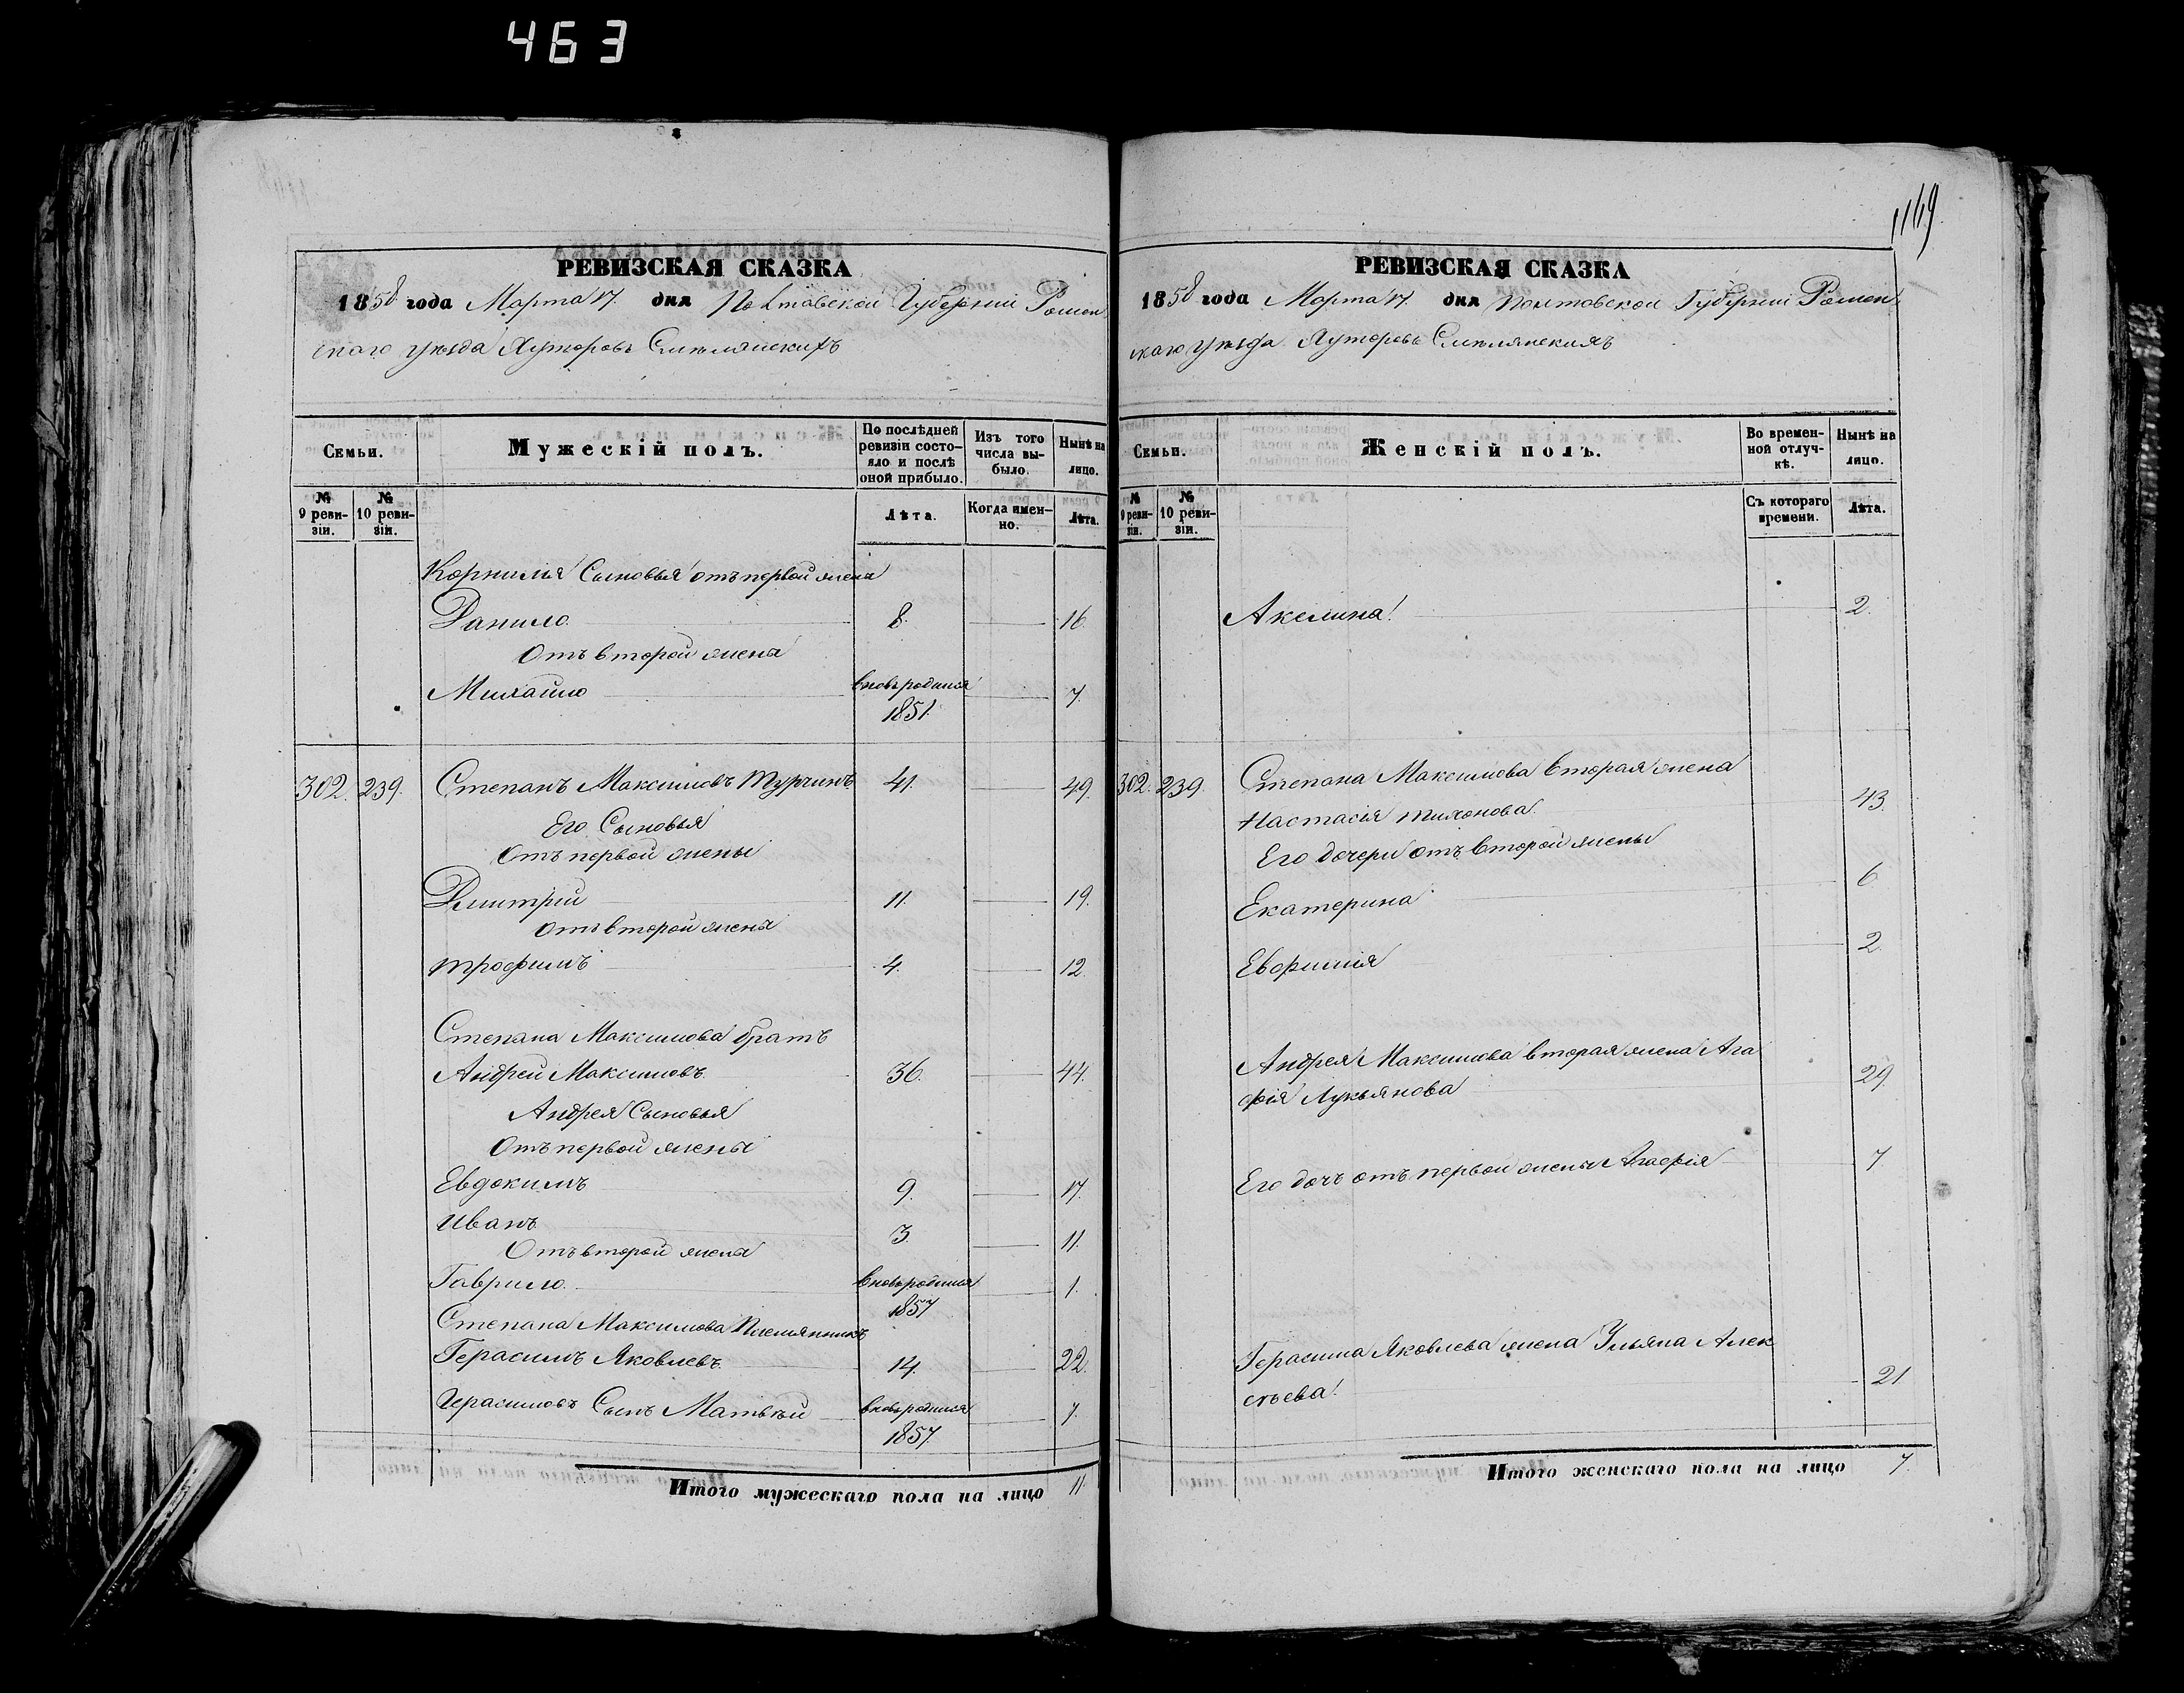 463
1169
РЕВИЗСКАЯ СКАЗКА
1858 года Марта 17. дня Полтавской Губерніи Ромен
скаго уѣзда Хуторовъ Смѣлянскихъ
Семьи.
Мужескій полъ.
По послѣдней ревизіи состояло и послѣ оной прибыло.
Изъ того числа выбыло.
Нынѣ на лицо.
№ 9 ревизіи.
№ 10 ревизіи.
Лѣта.
Когда именно.
Лѣта.
Корнилія Сыновья отъ первой жены
Данило. 8. 16.
Отъ второй жены
Михайло вновь родился 1851. 7.
302. 239. Степанъ Максимовъ Турчинъ 41. 49.
Его Сыновья
Отъ первой жены
Дмитрій 11 19.
Отъ второй жены
Трофимъ 4. 12.
Степана Максимова братъ
Андрей Максимовъ. 36. 44.
Андрея Сыновья
Отъ первой жены
Евдокимъ 9. 17.
Иванъ 3. 11.
Отъ второй жены
Гаврило. вновь родился 1857 1.
Степана Максимова Племянникъ
Герасимъ Яковлевъ 14. 22.
Герасимовъ Сынъ Матвѣй вновь родился 1857.
Итого мужескаго пола на лицо 11.
РЕВИЗСКАЯ СКАЗКА
1858 года Марта 17. дня Полтавской Губерніи Ромен
скаго уѣзда Хуторовъ Смѣлянскихъ
Семьи.
Женскій полъ.
Во временной отлучкѣ.
Нынѣ на лицо.
№ 9 ревизіи.
№ 10 ревизіи.
Съ котораго времени.
Лѣта.
Акелина 2.
302. 239. Степана Максимова вторая жена
Настасія Тихонова. 43.
Его дочери отъ второй жены
Екатерина 6
Евфимія 2.
Андрея Максимова вторая жена Ага
фія Лукьянова 29
Его дочь отъ первой жены Агафія 7
Герасима Яковлева жена Ульяна Алек
сѣева 21
Итого женскаго пола на лицо 7.